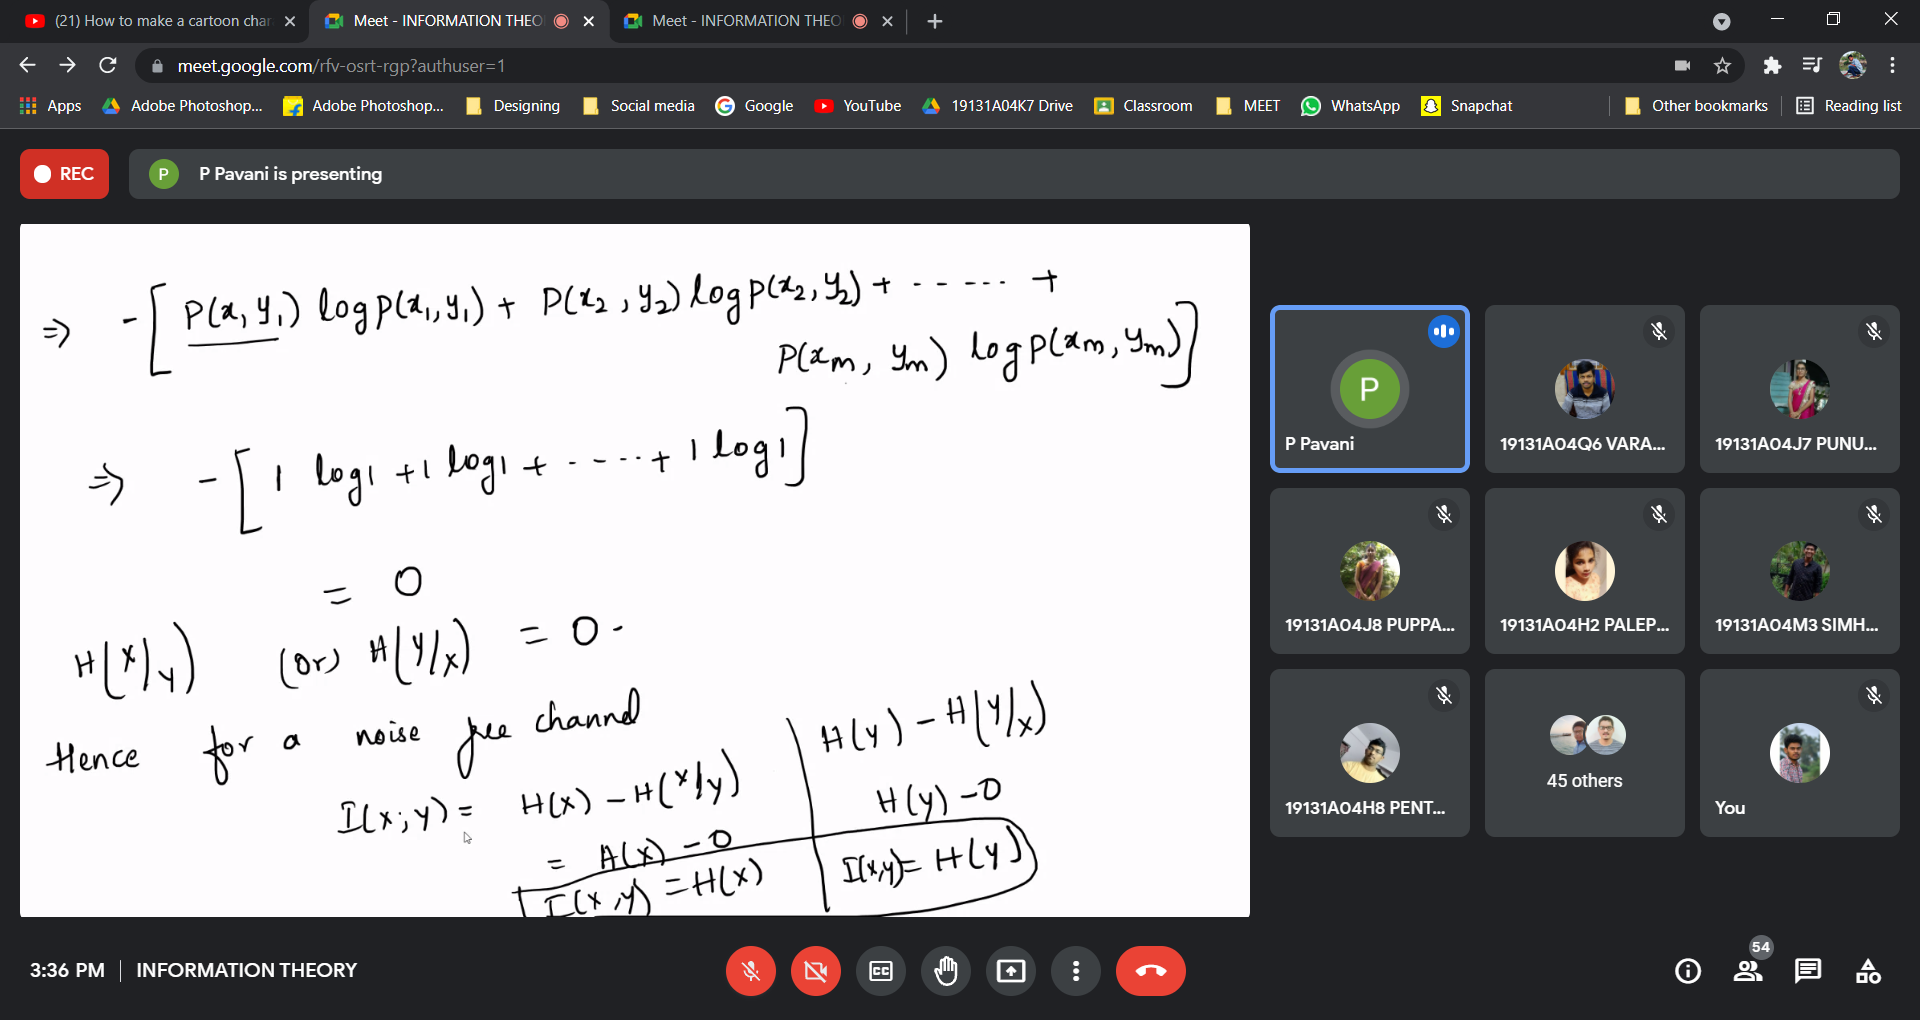 (21) How to make a cartoon char
Meet - INFORMATION THEO
Meet - INFORMATION THEO
meet.google.com/rfv-osrt-rgp?authuser=1
Apps Adobe Photoshop... Adobe Photoshop... Designing Social media Google YouTube 19131A04K7 Drive Classroom MEET WhatsApp Snapchat Other bookmarks Reading list
REC P P Pavani is presenting
⇒ -[P(x, y₁) log p(x₁,y₁) + P(x₂, y₂) log p(x₂, y₂) + ------ +
P(xm, ym) log p(xm, ym)]
⇒ -[1 log1 + 1 log1 + ----- + 1 log1]
= 0
H(X/Y) (or) H(Y/X) = 0.
Hence for a noise free channel
I(x;y) = H(x) - H(x/y)
= H(x) - 0
I(x,y) = H(x)
H(y) - H(y/x)
H(y) - 0
I(x,y) = H(y)
P
P Pavani
19131A04Q6 VARA...
19131A04J7 PUNU...
19131A04J8 PUPPA...
19131A04H2 PALEP...
19131A04M3 SIMH...
19131A04H8 PENT...
45 others
You
3:36 PM | INFORMATION THEORY
CC
54